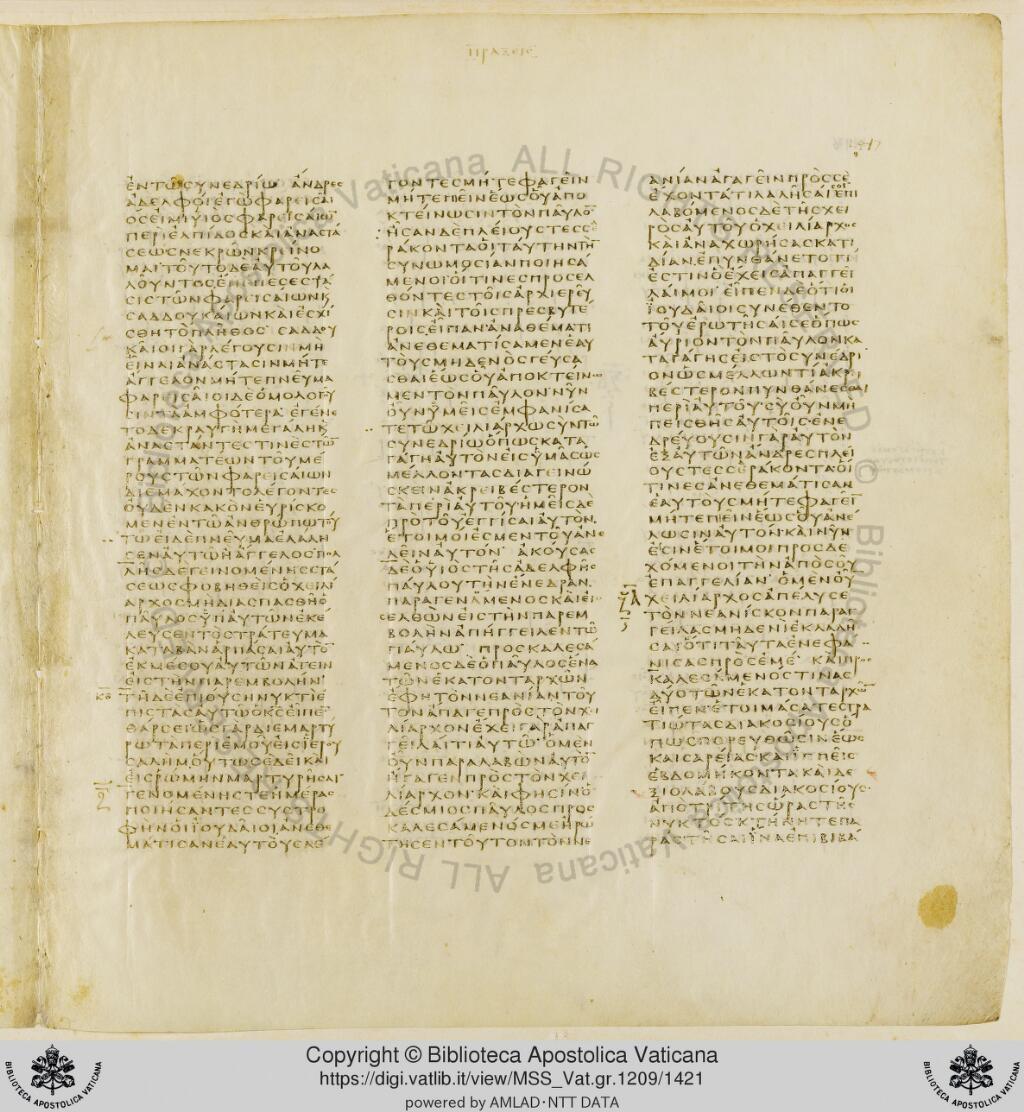 ΠΡΑΞΕΙΣ
ΕΝΤΩΣΥΝΕΔΡΙΩ ΑΝΔΡΕΣ
ΑΔΕΛΦΟΙΕΓΩΦΑΡΕΙΣΑΙ
ΟΣΕΙΜΙΥΙΟΣΦΑΡΕΙΣΑΙΩ
ΠΕΡΙΕΛΠΙΔΟΣΚΑΙΑΝΑΣΤΑ
ΣΕΩΣΝΕΚΡΩΝΚΡΕΙΝΟ
ΜΑΙΤΟΥΤΟΔΕΑΥΤΟΥΛΑ
ΛΟΥΝΤΟΣΕΠΕΠΕΣΕΣΤΑ
ΣΙΣΤΩΝΦΑΡΕΙΣΑΙΩΝΚ
ΣΑΔΔΟΥΚΑΙΩΝΚΑΙΕΣΧΙ
ΣΘΗΤΟΠΛΗΘΟΣ ΣΑΔΔΟΥ
ΚΑΙΟΙΓΑΡΛΕΓΟΥΣΙΝΜΗ
ΕΙΝΑΙΑΝΑΣΤΑΣΙΝΜΗΤΕ
ΑΓΓΕΛΟΝΜΗΤΕΠΝΕΥΜΑ
ΦΑΡΕΙΣΑΙΟΙΔΕΟΜΟΛΟΓΥ
ΣΙΝΤΑΑΜΦΟΤΕΡΑ ΕΓΕΝΕ
ΤΟΔΕΚΡΑΥΓΗΜΕΓΑΛΗΚ
ΑΝΑΣΤΑΝΤΕΣΤΙΝΕΣΤΩ
ΓΡΑΜΜΑΤΕΩΝΤΟΥΜΕ
ΡΟΥΣΤΩΝΦΑΡΕΙΣΑΙΩΝ
ΔΙΕΜΑΧΟΝΤΟΛΕΓΟΝΤΕΣ
ΟΥΔΕΝΚΑΚΟΝΕΥΡΙΣΚΟ
ΜΕΝΕΝΤΩΑΝΘΡΩΠΩΤΟΥ
ΤΩΕΙΔΕΠΝΕΥΜΑΕΛΑΛΗ
ΣΕΝΑΥΤΩΗΑΓΓΕΛΟΣΠΟΛ
ΛΗΣΔΕΓΕΙΝΟΜΕΝΗΣΣΤΑ
ΣΕΩΣΦΟΒΗΘΕΙΣΟΧΕΙΛΙ
ΑΡΧΟΣΜΗΔΙΑΣΠΑΣΘΗΟ
ΠΑΥΛΟΣΥΠΑΥΤΩΝΕΚΕ
ΛΕΥΣΕΝΤΟΣΤΡΑΤΕΥΜΑ
ΚΑΤΑΒΑΝΑΡΠΑΣΑΙΑΥΤΟ
ΕΚΜΕΣΟΥΑΥΤΩΝΑΓΕΙΝ
ΕΙΣΤΗΝΠΑΡΕΜΒΟΛΗΝ
ΤΗΔΕΕΠΙΟΥΣΗΝΥΚΤΙΕ
ΠΙΣΤΑΣΑΥΤΩΟΚΣΕΙΠΕ
ΘΑΡΣΕΙΩΣΓΑΡΔΙΕΜΑΡΤΥ
ΡΩΤΑΠΕΡΙΕΜΟΥΕΙΣΙΕΡΟΥ
ΣΑΛΗΜΟΥΤΩΣΕΔΕΙΚΑΙ
ΕΙΣΡΩΜΗΝΜΑΡΤΥΡΗΣΑΙ
ΓΕΝΟΜΕΝΗΣΤΕΗΜΕΡΑΣ
ΠΟΙΗΣΑΝΤΕΣΣΥΣΤΡΟ
ΦΗΝΟΙΙΟΥΔΑΙΟΙΑΝΕΘΕ
ΜΑΤΙΣΑΝΕΑΥΤΟΥΣΛΕ
ΓΟΝΤΕΣΜΗΤΕΦΑΓΕΙΝ
ΜΗΤΕΠΕΙΝΕΩΣΟΥΑΠΟ
ΚΤΕΙΝΩΣΙΝΤΟΝΠΑΥΛΟ
ΗΣΑΝΔΕΠΛΕΙΟΥΣΤΕΣΣΕ
ΡΑΚΟΝΤΑΟΙΤΑΥΤΗΝΤΗ
ΣΥΝΩΜΟΣΙΑΝΠΟΙΗΣΑ
ΜΕΝΟΙΟΙΤΙΝΕΣΠΡΟΣΕΛ
ΘΟΝΤΕΣΤΟΙΣΑΡΧΙΕΡΕΥ
ΣΙΝΚΑΙΤΟΙΣΠΡΕΣΒΥΤΕ
ΡΟΙΣΕΙΠΑΝΑΝΑΘΕΜΑΤΙ
ΑΝΕΘΕΜΑΤΙΣΑΜΕΝΕΑΥ
ΤΟΥΣΜΗΔΕΝΟΣΓΕΥΣΑ
ΣΘΑΙΕΩΣΟΥΑΠΟΚΤΕΙΝΩ
ΜΕΝΤΟΝΠΑΥΛΟΝΝΥΝ
ΟΥΝΥΜΕΙΣΕΜΦΑΝΙΣΑ
ΤΕΤΩΧΕΙΛΙΑΡΧΩΣΥΝΤΩ
ΣΥΝΕΔΡΙΩΟΠΩΣΚΑΤΑ
ΓΑΓΗΑΥΤΟΝΕΙΣΥΜΑΣΩΣ
ΜΕΛΛΟΝΤΑΣΔΙΑΓΕΙΝΩ
ΣΚΕΙΝΑΚΡΕΙΒΕΣΤΕΡΟΝ
ΤΑΠΕΡΙΑΥΤΟΥΗΜΕΙΣΔΕ
ΠΡΟΤΟΥΕΓΓΙΣΑΙΑΥΤΟΝ
ΕΤΟΙΜΟΙΕΣΜΕΝΤΟΥΑΝΕ
ΛΕΙΝΑΥΤΟΝ ΑΚΟΥΣΑΣ
ΔΕΟΥΙΟΣΤΗΣΑΔΕΛΦΗΣ
ΠΑΥΛΟΥΤΗΝΕΝΕΔΡΑΝ
ΠΑΡΑΓΕΝΑΜΕΝΟΣΚΑΙΕΙ
ΣΕΛΘΩΝΕΙΣΤΗΝΠΑΡΕΜ
ΒΟΛΗΝΑΠΗΓΓΕΙΛΕΝΤΩ
ΠΑΥΛΩ ΠΡΟΣΚΑΛΕΣΑ
ΜΕΝΟΣΔΕΟΠΑΥΛΟΣΕΝΑ
ΤΩΝΕΚΑΤΟΝΤΑΡΧΩΝ
ΕΦΗΤΟΝΝΕΑΝΙΑΝΤΟΥ
ΤΟΝΑΠΑΓΕΠΡΟΣΤΟΝΧΙ
ΛΙΑΡΧΟΝΕΧΕΙΓΑΡΑΠΑΓ
ΓΕΙΛΑΙΤΙΑΥΤΩ ΟΜΕΝ
ΟΥΝΠΑΡΑΛΑΒΩΝΑΥΤΟ
ΗΓΑΓΕΝΠΡΟΣΤΟΝΧΕΙ
ΛΙΑΡΧΟΝ ΚΑΙΦΗΣΙΝΟ
ΔΕΣΜΙΟΣΠΑΥΛΟΣΠΡΟΣ
ΚΑΛΕΣΑΜΕΝΟΣΜΕΗΡΩ
ΤΗΣΕΝΤΟΥΤΟΝΤΟΝΝΕ
ΑΝΙΑΝΑΓΑΓΕΙΝΠΡΟΣΣΕ
ΕΧΟΝΤΑΤΙΛΑΛΗΣΑΙΣΟΙΕΠΙ
ΛΑΒΟΜΕΝΟΣΔΕΤΗΣΧΕΙ
ΡΟΣΑΥΤΟΥΟΧΕΙΛΙΑΡΧΟΣ
ΚΑΙΑΝΑΧΩΡΗΣΑΣΚΑΤΙ
ΔΙΑΝΕΠΥΝΘΑΝΕΤΟΤΙ
ΕΣΤΙΝΟΕΧΕΙΣΑΠΑΓΓΕΙ
ΛΑΙΜΟΙ ΕΙΠΕΝΔΕΟΤΙΟΙ
ΙΟΥΔΑΙΟΙΣΥΝΕΘΕΝΤΟ
ΤΟΥΕΡΩΤΗΣΑΙΣΕΟΠΩΣ
ΑΥΡΙΟΝΤΟΝΠΑΥΛΟΝΚΑ
ΤΑΓΑΓΗΣΕΙΣΤΟΣΥΝΕΔΡΙ
ΟΝΩΣΜΕΛΛΩΝΤΙΑΚΡΙ
ΒΕΣΤΕΡΟΝΠΥΝΘΑΝΕΣΘΑΙ
ΠΕΡΙΑΥΤΟΥΣΥΟΥΝΜΗ
ΠΕΙΣΘΗΣΑΥΤΟΙΣ ΕΝΕ
ΔΡΕΥΟΥΣΙΝΓΑΡΑΥΤΟΝ
ΕΞΑΥΤΩΝΑΝΔΡΕΣΠΛΕΙ
ΟΥΣΤΕΣΣΕΡΑΚΟΝΤΑΟΙ
ΤΙΝΕΣΑΝΕΘΕΜΑΤΙΣΑΝ
ΕΑΥΤΟΥΣΜΗΤΕΦΑΓΕΙ
ΜΗΤΕΠΕΙΝΕΩΣΟΥΑΝΕ
ΛΩΣΙΝΑΥΤΟΝΚΑΙΝΥΝ
ΕΙΣΙΝΕΤΟΙΜΟΙΠΡΟΣΔΕ
ΧΟΜΕΝΟΙΤΗΝΑΠΟΣΟΥ
ΕΠΑΓΓΕΛΙΑΝ ΟΜΕΝΟΥ
ΧΕΙΛΙΑΡΧΟΣΑΠΕΛΥΣΕ
ΤΟΝΝΕΑΝΙΣΚΟΝΠΑΡΑΓ
ΓΕΙΛΑΣΜΗΔΕΝΙΕΚΛΑΛΗ
ΣΑΙΟΤΙΤΑΥΤΑΕΝΕΦΑ
ΝΙΣΑΣΠΡΟΣΕΜΕ ΚΑΙΠΡΟΣ
ΚΑΛΕΣΑΜΕΝΟΣΤΙΝΑΣ
ΔΥΟΤΩΝΕΚΑΤΟΝΤΑΡΧΩ
ΕΙΠΕΝΕΤΟΙΜΑΣΑΤΕΣΤΡΑ
ΤΙΩΤΑΣΔΙΑΚΟΣΙΟΥΣΟ
ΠΩΣΠΟΡΕΥΘΩΣΙΝΕΩΣ
ΚΑΙΣΑΡΕΙΑΣΚΑΙΙΠΠΕΙΣ
ΕΒΔΟΜΗΚΟΝΤΑΚΑΙΔΕ
ΞΙΟΛΑΒΟΥΣΔΙΑΚΟΣΙΟΥΣ
ΑΠΟΤΡΙΤΗΣΩΡΑΣΤΗΣ
ΝΥΚΤΟΣΚΤΗΝΗΤΕΠΑ
ΡΑΣΤΗΣΑΙΙΝΑΕΠΙΒΙΒΑ
Copyright © Biblioteca Apostolica Vaticana
https://digi.vatlib.it/view/MSS_Vat.gr.1209/1421
powered by AMLAD·NTT DATA